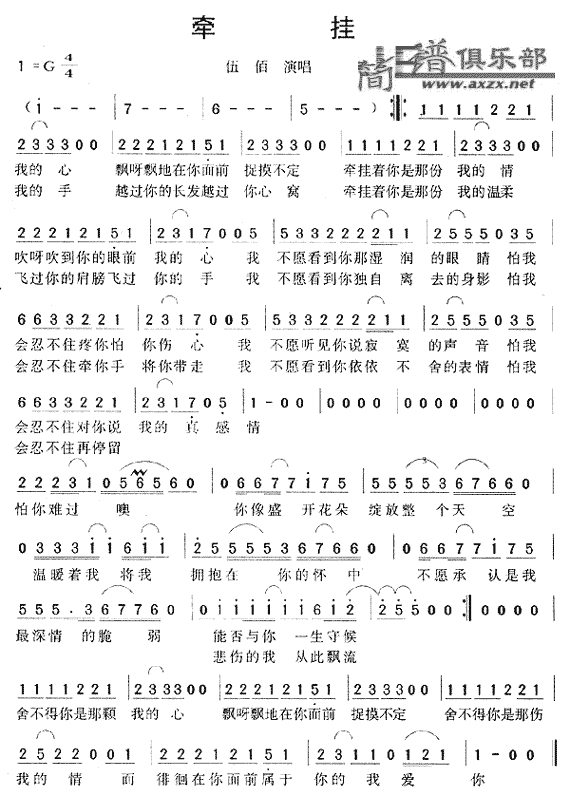 牵 挂
1=G 4/4
伍 佰 演唱
简谱俱乐部
www.axzx.net
( i - - - | 7 - - - | 6 - - - | 5 - - - ) ‖: 1 1 1 1 2 2 1 |
2 3 3 3 0 0 | 2 2 2 1 2 1 5 1 | 2 3 3 3 0 0 | 1 1 1 1 2 2 1 | 2 3 3 3 0 0 |
我的 心 飘呀飘地在你面前 捉摸不定 牵挂着你是那份 我的 情
我的 手 越过你的长发越过 你心 窝 牵挂着你是那份 我的温柔
2 2 2 1 2 1 5 1 | 2 3 1 7 0 0 5 | 5 3 3 2 2 2 2 1 1 | 2 5 5 5 5 0 3 5 |
吹呀吹到你的眼前 我的 心 我 不愿看到你那湿 润 的眼 睛 怕我
飞过你的肩膀飞过 你的 手 我 不愿看到你独自 离 去的身影 怕我
6 6 3 3 2 2 1 | 2 3 1 7 0 0 5 | 5 3 3 2 2 2 2 1 1 | 2 5 5 5 5 0 3 5 |
会忍不住疼你怕 你伤 心 我 不愿听见你说寂 寞 的声 音 怕我
会忍不住牵你手 将你带走 我 不愿看到你依依 不 舍的表情 怕我
6 6 3 3 2 2 1 | 2 3 1 7 0 5 | 1 - 0 0 | 0 0 0 0 | 0 0 0 0 | 0 0 0 0 |
会忍不住对你说 我的 真 感 情
会忍不住再停留
2 2 2 3 1 0 5 6 5 6 0 | 0 6 6 7 7 i 7 5 | 5 5 5 5 3 6 7 6 6 0 |
怕你难过 噢 你像盛 开花朵 绽放整 个天 空
0 3 3 3 i i 6 i i | 2 5 5 5 5 3 6 7 6 6 0 | 0 6 6 7 7 i 7 5 |
温暖着我 将我 拥抱在 你的怀 中 不愿承 认是我
5 5 5 . 3 6 7 7 6 0 | 0 i i i i i i 6 i 2 | 2 5 5 0 0 :‖ 0 0 0 0 |
最深情 的脆 弱 能否与你 一生守候
悲伤的我 从此飘流
1 1 1 1 2 2 1 | 2 3 3 3 0 0 | 2 2 2 1 2 1 5 1 | 2 3 3 3 0 0 | 1 1 1 1 2 2 1 |
舍不得你是那颗 我的 心 飘呀飘地在你面前 捉摸不定 舍不得你是那伤
2 5 2 2 0 0 1 | 2 2 2 1 2 1 2 1 | 2 3 1 0 1 2 1 | 1 - 0 0 ‖
我的 情 而 徘徊在你面前属于 你的 我 爱 你